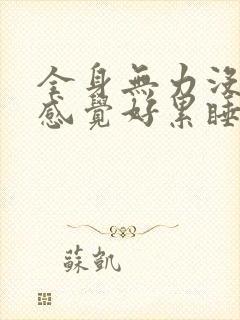 全身無力沒
感覺好累睡
蘇凱